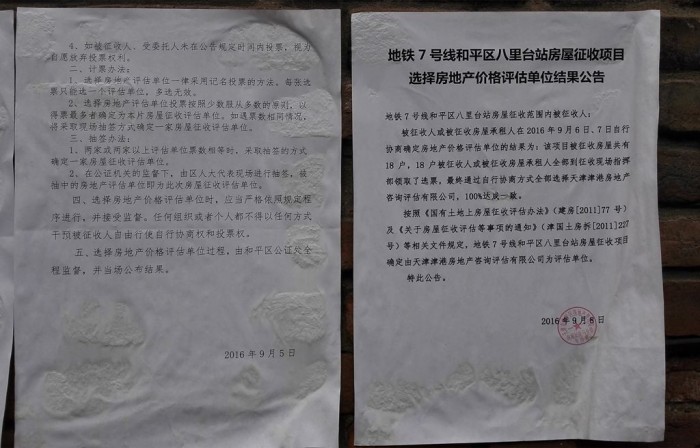 4、如被征收人、受委托人未在公告规定时间内投票，视为
自愿放弃投票权利。
二、计票办法：
1、选择房地产评估单位一律采用记名投票的方法。每张选
票只能选一个评估单位，多选无效。
2、选择房地产评估单位投票按照少数服从多数的原则，以
得票最多者确定为本片房屋征收评估单位。如遇票数相同情况，
将采取现场抽签方式确定一家房屋征收评估单位。
三、抽签办法：
1、两家或两家以上评估单位票数相等时，采取抽签的方式
确定一家房屋征收评估单位。
2、在公证机关的监督下，由区人大代表现场进行抽签，被
抽中的房地产评估单位即为此次房屋征收评估单位。
四、选择房地产价格评估单位时，应当严格依照规定程
序进行，并接受监督。任何组织或者个人都不得以任何方式
干预被征收人自由行使自行协商权和投票权。
五、选择房地产价格评估单位过程，由和平区公证处全
程监督，并当场公布结果。
2016年9月5日
地铁7号线和平区八里台站房屋征收项目
选择房地产价格评估单位结果公告
地铁7号线和平区八里台站房屋征收范围内被征收人：
被征收人或被征收房屋承租人在2016年9月6日、7日自行
协商确定房地产价格评估单位的结果为：该项目被征收房屋共有
18户，18户被征收人或被征收房屋承租人全部到征收现场指挥
部领取了选票，最终通过自行协商方式全部选择天津津港房地产
咨询评估有限公司，100%达成一致。
按照《国有土地上房屋征收评估办法》（建房[2011]77号）
及《关于房屋征收评估等事项的通知》（津国土房拆[2011]227
号）等相关文件规定，地铁7号线和平区八里台站房屋征收项目
确定由天津津港房地产咨询评估有限公司为评估单位。
特此公告。
2016年9月8日